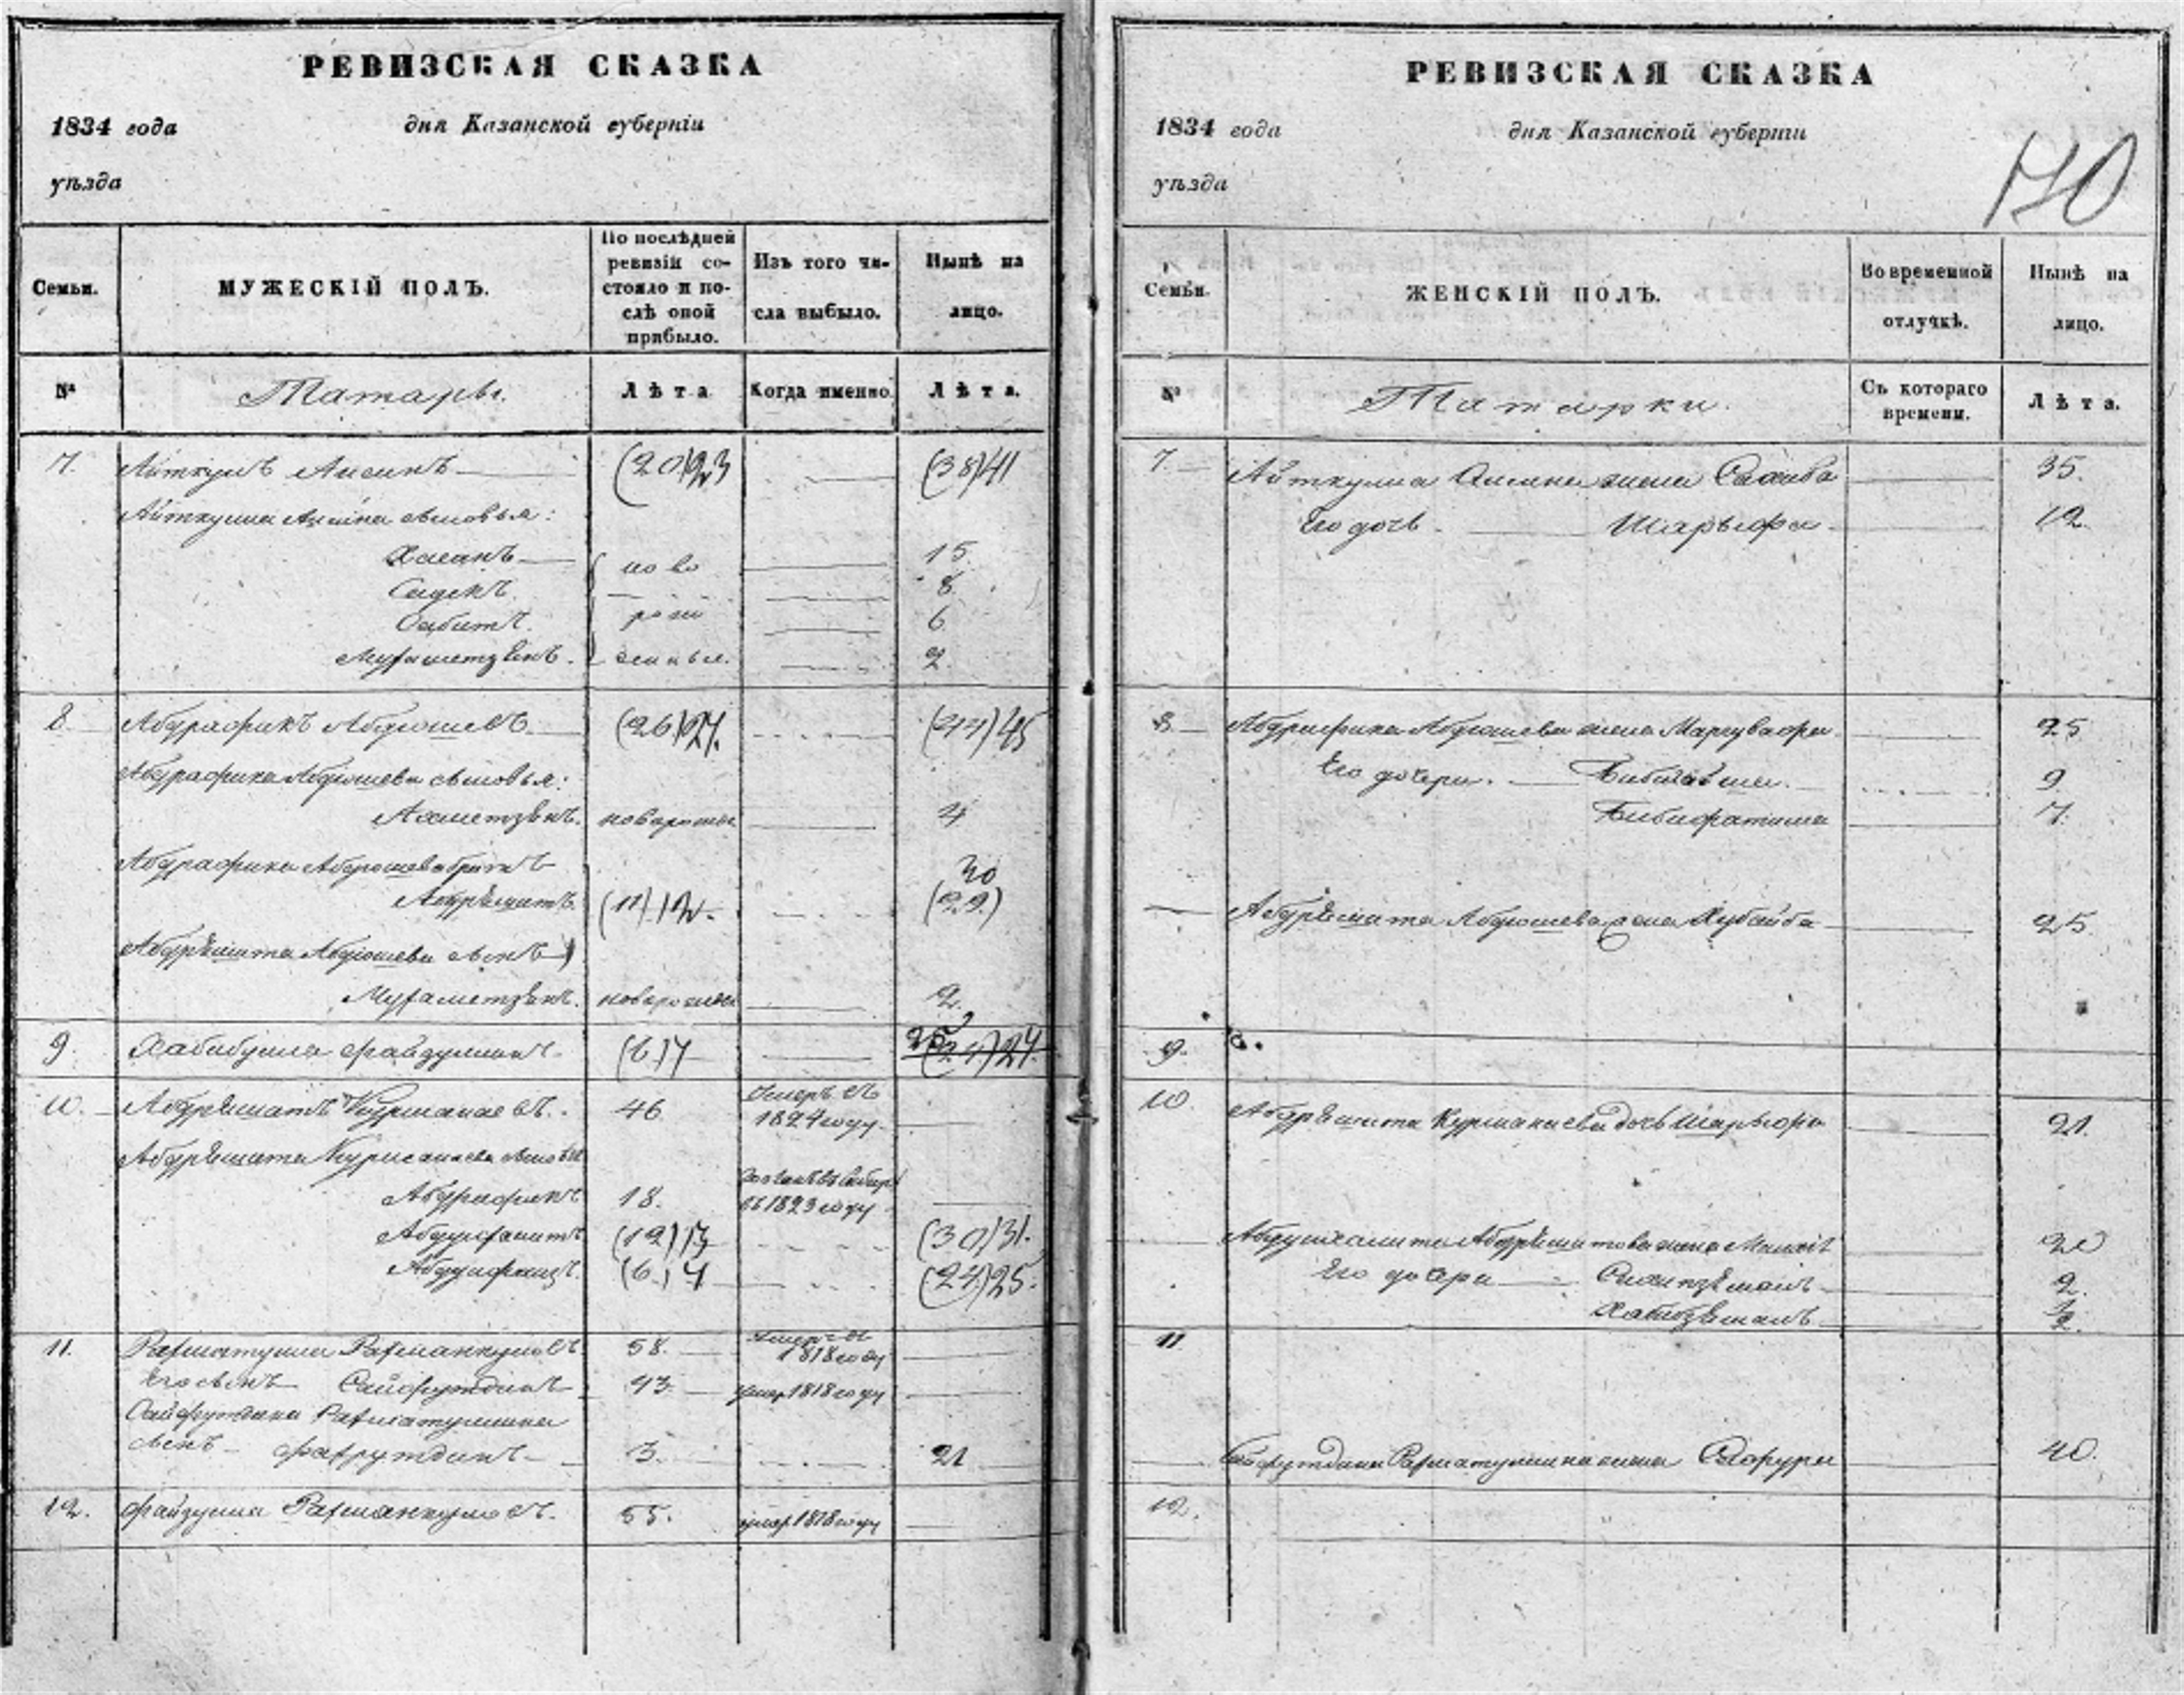 РЕВИЗСКАЯ СКАЗКА
1834 года дня Казанской губерніи
уѣзда
Семьи.
МУЖЕСКІЙ ПОЛЪ.
По послѣдней
ревизіи со-
стояло и по-
слѣ оной
прибыло.
Изъ того чи-
сла выбыло.
Нынѣ на
лицо.
№
Татары.
Лѣта
Когда именно.
Лѣта.
7. Айткулъ Апсинъ (20)23 (38)41
Айткула сыновья:
Хасанъ ново 15
Садикъ 8
Сабитъ рож 6
Мухаметзянъ денныя 2
8. Абдрафикъ Абдюшевъ (26)27. (44)45
Абдрафика Абдюшева сыновья:
Ахметзянъ новорожден 4
Абдрафика Абдюшева братъ 30
Абдрѣшитъ (11).12. (29)
Абдрѣшита Абдюшева сынъ
Мухаметзянъ новорожден 2.
9. Хабибулла Файзуллинъ (6)7 (24)24.
10. Абдрѣшитъ Курманаевъ. 46. Умеръ въ
1824 году
Абдрѣшита Курманаева сыновья
Абдрафикъ 18. въ 1823 году
(12)13 (30)31.
(6)7 (24)25.
11. Рахматулла Рахманкуловъ 58. Умеръ въ
1818 году
Его сынъ Сайфутдинъ 43 умер 1818 году
Сайфутдина Рахматуллина
сынъ Фахрутдинъ 3. 21
12. Файзулла Рахманкуловъ. 55. умер 1818 году
РЕВИЗСКАЯ СКАЗКА
1834 года дня Казанской губерніи
170
уѣзда
Семьи.
ЖЕНСКІЙ ПОЛЪ.
Во временной
отлучкѣ.
Нынѣ на
лицо.
№
Татарки.
Съ котораго
времени.
Лѣта.
7. Айткула жена 35.
Его дочь Шарыфа 12.
8. Абдрафика Абдюшева жена 25
Его дочери. 9
Бибифатима 7.
Абдрѣшита Абдюшева жена Хубайба 25
9.
10. Абдрѣшита Курманаева дочь Шарыфа 21.
Абдрѣшитова жена 20
Его дочери 2.
11.
Сайфутдина Рахматуллина жена Сафура 40.
12.